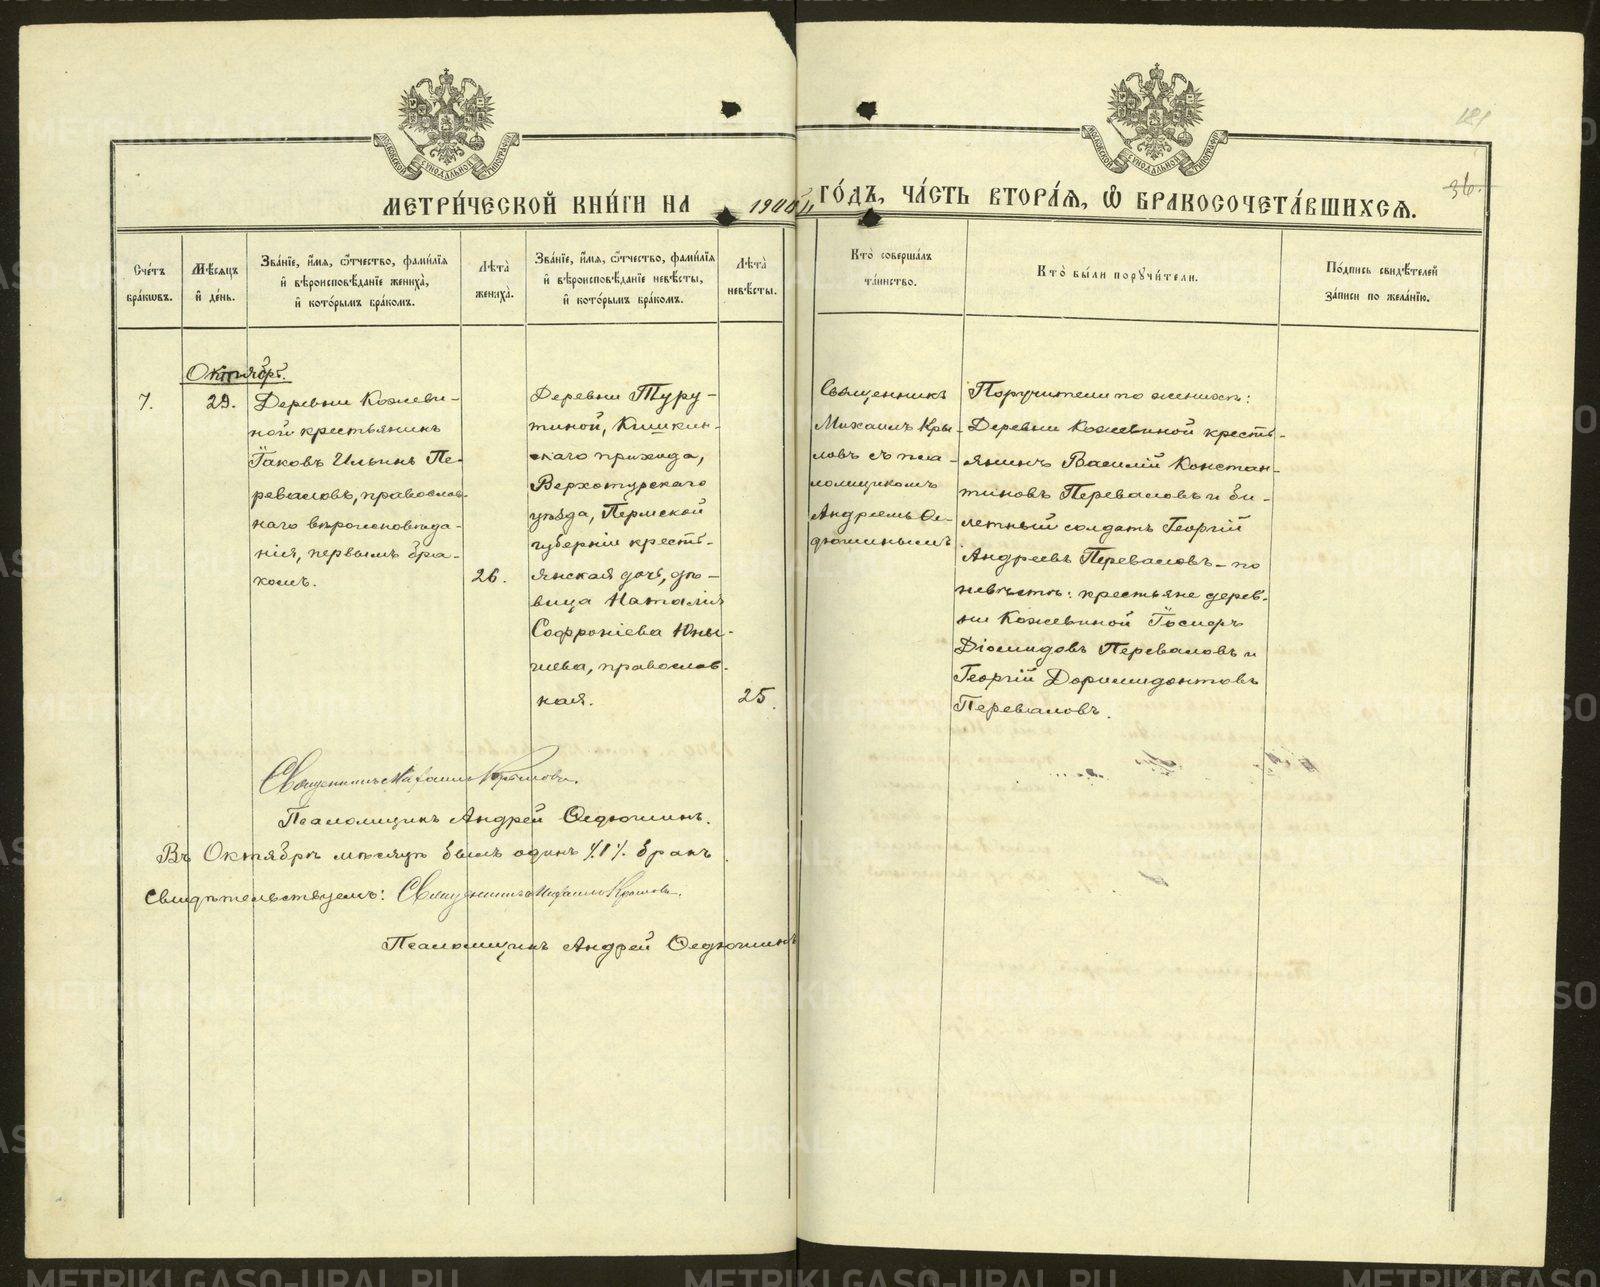 МЕТРИ́ЧЕСКОЙ КНИ́ГИ НА 1900 ГО́ДЪ, ЧА́СТЬ ВТОРА́Я, Ѽ БРАКОСОЧЕТА́ВШИХСЯ.
181
36.
МОСКОВСКОЙ СѴНОДАЛЬНОЙ ТИПОГРАФІИ
МОСКОВСКОЙ СѴНОДАЛЬНОЙ ТИПОГРАФІИ
Сче́тъ
бра́ковъ.
Мѣ́сяцъ
и̑ де́нь.
Зва́нїе, и́мя, ѻ́тчество, фами́лїя
и̑ вѣроисповѣ́данїе жениха̀,
и̑ кото́рымъ бра́комъ.
Лѣта̀
жениха̀.
Зва́нїе, и́мя, ѻ́тчество, фами́лїя
и̑ вѣроисповѣ́данїе невѣ́сты,
и̑ кото́рымъ бра́комъ.
Лѣта̀
невѣ́сты.
Кто̀ соверша́лъ
та́инство.
Кто̀ бы́ли порꙋчи́тели.
По́дпись свидѣ́телей
за́писи по жела́нїю.
Октябрь.
7.
29.
Деревни Кожеви-
ной крестьянинъ
Іаковъ Ильинъ Пе-
реваловъ, православ-
наго вѣроисповѣда-
нія, первымъ бра-
комъ.
26.
Деревни Туру-
тиной, Кишкин-
скаго прихода,
Верхотурскаго
уѣзда, Пермской
губерніи кресть-
янская дочь, дѣ-
вица Наталія
Софроніева Юны-
чева, православ-
ная.
25.
Священникъ
Михаилъ Кры-
ловъ съ пса-
ломщикомъ
Андреемъ Ѳе-
дюшинымъ
Поручители по женихѣ:
Деревни Кожевиной кресть-
янинъ Василій Констан-
тиновъ Переваловъ и би-
летный солдатъ Георгій
Андреевъ Переваловъ - по
невѣстѣ: крестьяне дерев-
ни Кожевиной Іосифъ
Діомидовъ Переваловъ и
Георгій Доримидонтовъ
Переваловъ.
Священникъ Михаилъ Крыловъ.
Псаломщикъ Андрей Ѳедюшинъ.
Въ Октябрѣ мѣсяцѣ былъ одинъ /.1/. бракъ.
Свидѣтельствуемъ: Священникъ Михаилъ Крыловъ.
Псаломщикъ Андрей Ѳедюшинъ
METRIKI.GASO-URAL.RU